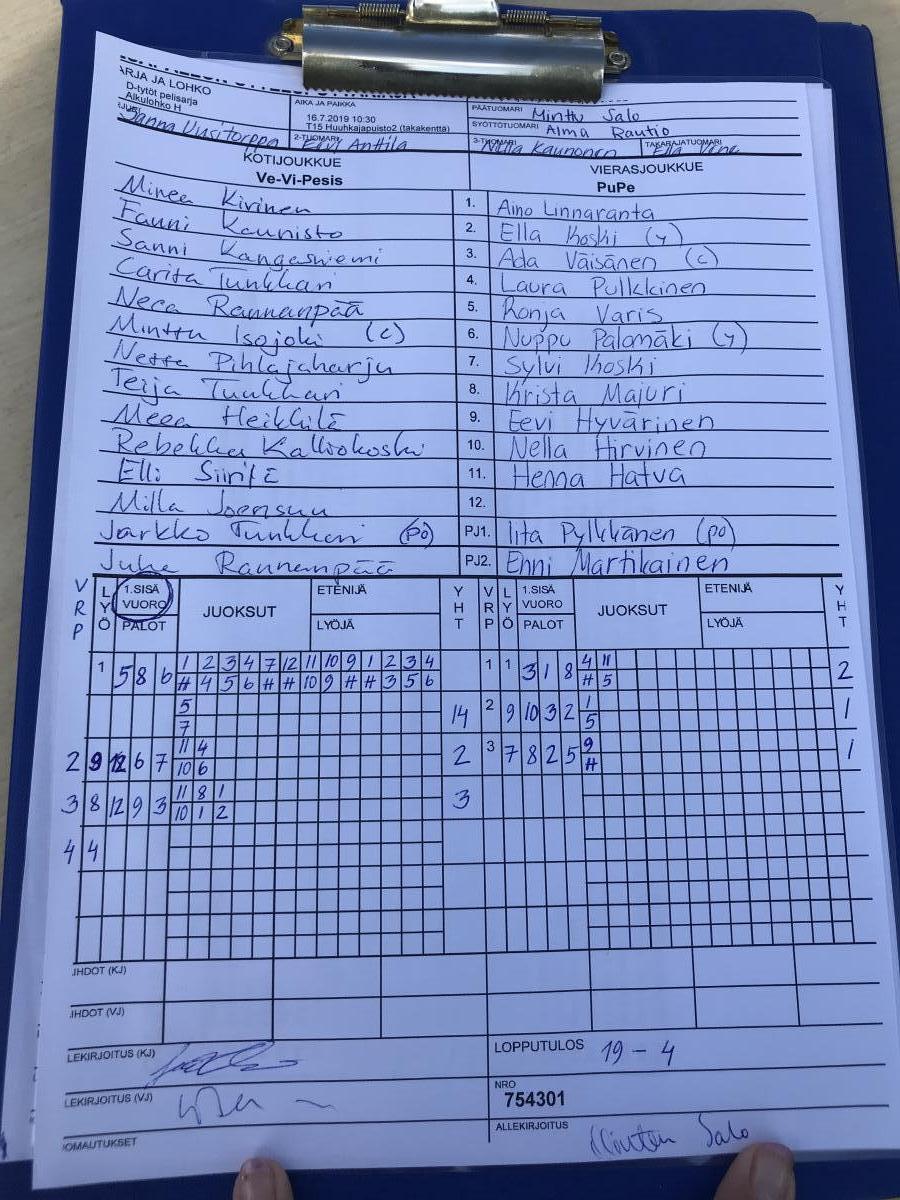 ARJA JA LOHKO
D-tytöt pelisarja
Alkulohko H
AIKA JA PAIKKA
16.7.2019 10:30
T15 Huuhkajapuisto2 (takakenttä)
PÄÄTUOMARI Minttu Salo
SYÖTTÖTUOMARI Alma Rautio
Sanna Uusitorppa
2-TUOMARI Eevi Anttila
3-TUOMARI Nilla Kaunonen
TAKARAJATUOMARI Ella
KOTIJOUKKUE
Ve-Vi-Pesis
VIERASJOUKKUE
PuPe
Minea Kivinen 1. Aino Linnaranta
Fanni Kaunisto 2. Ella Koski (y)
Sanni Kangasniemi 3. Ada Väisänen (c)
Carita Tunkkari 4. Laura Pulkkinen
Neea Rannanpää 5. Ronja Varis
Minttu Isojoki (c) 6. Nuppu Palomäki (y)
Netta Pihlajaharju 7. Sylvi Koski
Teija Tunkkari 8. Krista Majuri
Meea Heikkilä 9. Eevi Hyvärinen
Rebekka Kalliokoski 10. Nella Hirvinen
Elli Siirilä 11. Henna Hatva
Milla Joensuu 12.
Jarkko Tunkkari (po) PJ1. Iita Pylkkänen (po)
Juha Rannanpää PJ2. Enni Martikainen
VRP LYÖ 1.SISÄ VUORO PALOT JUOKSUT ETENIJÄ LYÖJÄ YHT VRP LYÖ 1.SISÄ VUORO PALOT JUOKSUT ETENIJÄ LYÖJÄ YHT
1 5 8 6 1 2 3 4 7 12 11 10 9 1 2 3 4 1 1 3 1 8 4 11 2
# 4 5 6 # # 10 9 # # 3 5 6 # 5
5 14 2 9 10 3 2 1 1
7 5
2 9 12 6 7 11 4 2 3 7 8 2 5 9 1
10 6 #
3 8 12 9 3 11 8 1 3
10 1 2
4 4
JHDOT (KJ)
JHDOT (VJ)
LEKIRJOITUS (KJ)
LOPPUTULOS 19 - 4
LEKIRJOITUS (VJ)
NRO
754301
OMAUTUKSET
ALLEKIRJOITUS Minttu Salo